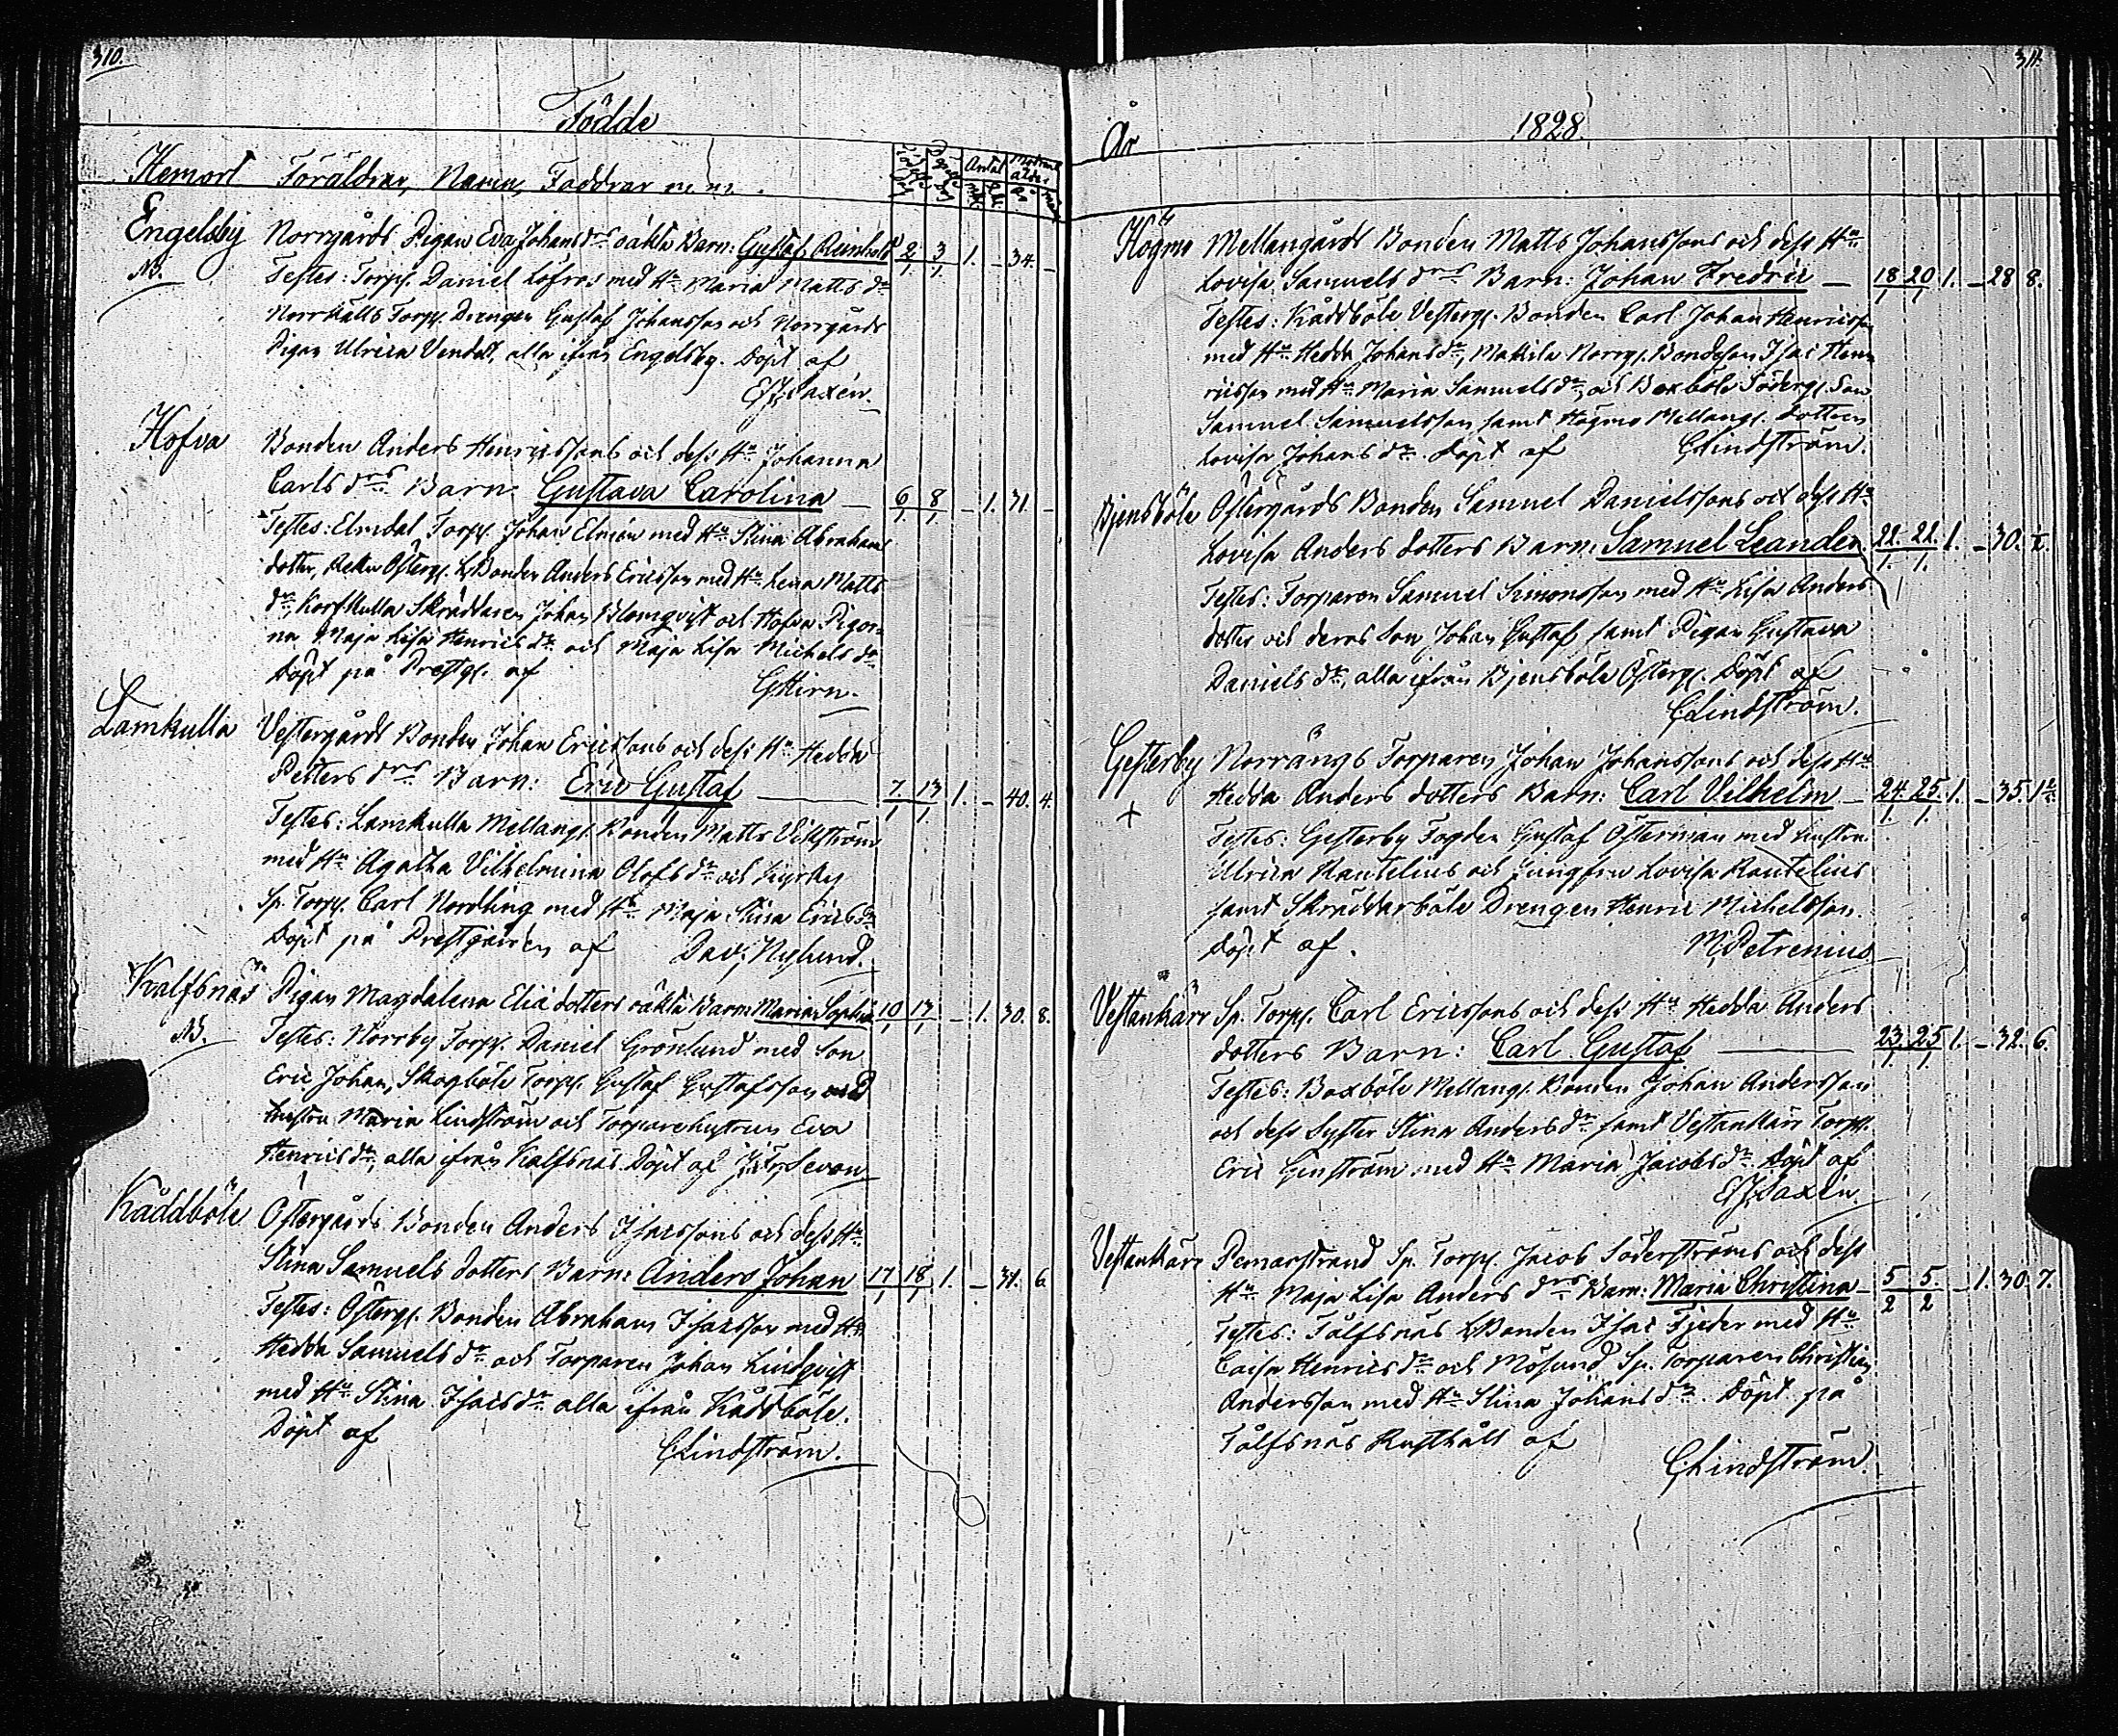 310.
Födde
Hemort Föräldrar, Namn, Faddrar m m.
Födelse dag Döpelse dag Antal Modrens ålder
mk. qk. år mån
Engelsby Norrgårds Pigan Eva Johans drs oäkta Barn: Gustaf Reinhold 2/1. 3/1. 1. - 34. -
NB. Testes: Torp. Daniel Löfros med Hu Maria Matts dr
Norrkulls Torp. Drengen Gustaf Johansson och Norrgårds
Pigan Ulrica Vendel, alla ifrån Engelsby. Döpt af
Saxén.
Hofva Bonden Anders Henricssons och dess Hu Johanna
Carls drs Barn Gustava Carolina — 6/1. 8/1. - 1. 31. -
Testes: Elmdal Torp. Johan Elmén med Hu Stina Abrahams
dotter, Österg. Bonden Anders Ericsson med Hu Lena Matts
dr, Korskulla Skräddaren Johan Blomqvist och Hofva Pigor=
na Maja Lisa Henrics dr och Maja Lisa Michels dr
Döpt på Prestg. af
GHirn.
Lamkulla Vestergårds Bonden Johan Ericssons och dess Hu Hedda
Petters drs Barn: Eric Gustaf — 7./1 13/1 1. - 40. 4.
Testes: Lamkulla Mellang. Bonden Matts Vikström
med Hu Agatha Vilhelmina Olofs dr och Kyrky
Sp. Torp. Carl Nordling med Hu Maja Stina Erics dr
Döpt på Prestgården af Dav: Nylund.
Kalfsnäs Pigan Magdalena Eliä dotters oäkta Barn Maria Sophia 10/1 13/1 - 1. 30. 8.
NB. Testes: Norrby Torp. Daniel Grönlund med Son
Eric Johan, Skogböle Torp. Gustaf Gustafsson med
hustru Maria Lindström och Torparehustrun Eva
Henrics dr, alla ifrån Kalfsnäs. Döpt af Sevon
Kåddböle Östergårds Bonden Anders Isacssons och dess Hu
Stina Samuels dotters Barn: Anders Johan 17/1 18/1 1. - 31. 6
Testes: Österg. Bonden Abraham Isacsson med Hu
Hedda Samuels dr och Torparen Johan Lindqvist
med Hu Stina Isacs dr alla ifrån Kåddböle.
Döpt af
CLindström.
311.
År 1828.
Högmo Mellangårds Bonden Matts Johanssons och dess Hu
Lovisa Samuels drs Barn: Johan Fredric — 18/1 20/1 1. - 28 8.
Testes: Kåddböle Vesterg. Bonden Carl Johan Henricsson
med Hu Hedda Johans dr, Mattila Norrg. Bondeson Isac Hen
ricsson med Hu Maria Samuels dr och Boxböle Söderg. Son
Samuel Samuelsson samt Högmo Mellang. dottren
Lovisa Johans dr. Döpt af CLindström.
Bjensböle Östergårds Bonden Samuel Danielssons och dess Hu
Lovisa Anders dotters Barn: Samuel Leander. 22./1. 22./1. 1. - 30. ½.
Testes: Torparen Samuel Simonsson med Hu Lisa Anders
dotter och deras Son Johan Gustaf samt Pigan Gustava
Daniels dr, alla ifrån Bjensböle Österg. Döpt af
CLindström.
Gesterby Norrängs Torparen Johan Johanssons och dess Hu
Hedda Anders dotters Barn: Carl Vilhelm — 24./1. 25./1. 1. - 35. 1½.
+ Testes: Gesterby Fogden Gustaf Österman med hustru
Ulrica Rautelius och Jungfru Lovisa Rautelius
samt Skräddarböle Drengen Henric Michelsson.
Döpt af. M. Petrenius
Vestankärr Sp. Torp. Carl Ericssons och dess Hu Hedda Anders
dotters Barn: Carl Gustaf — 23./1. 25/1. 1. - 32. 6.
Testes: Boxböle Mellang. Bonden Johan Andersson
och dess Syster Stina Anders dr samt Vestankärr Torp.
Eric Genström med Hu Maria Jacobs dr. Döpt af
Saxén
Vestankärr Pemarstrand Sp. Torp. Jacob Söderströms och dess
Hu Maja Lisa Anders drs Barn: Maria Christina — 5/2 5./2 - 1. 30. 7.
Testes: Tålfsnäs Bonden Isac Fjeder med Hu
Caisa Henrics dr och Mösund Sp. Torparen Christian
Andersson med Hu Stina Johans dr. Döpt på
Tålfsnäs Rusthåll af
CLindström.